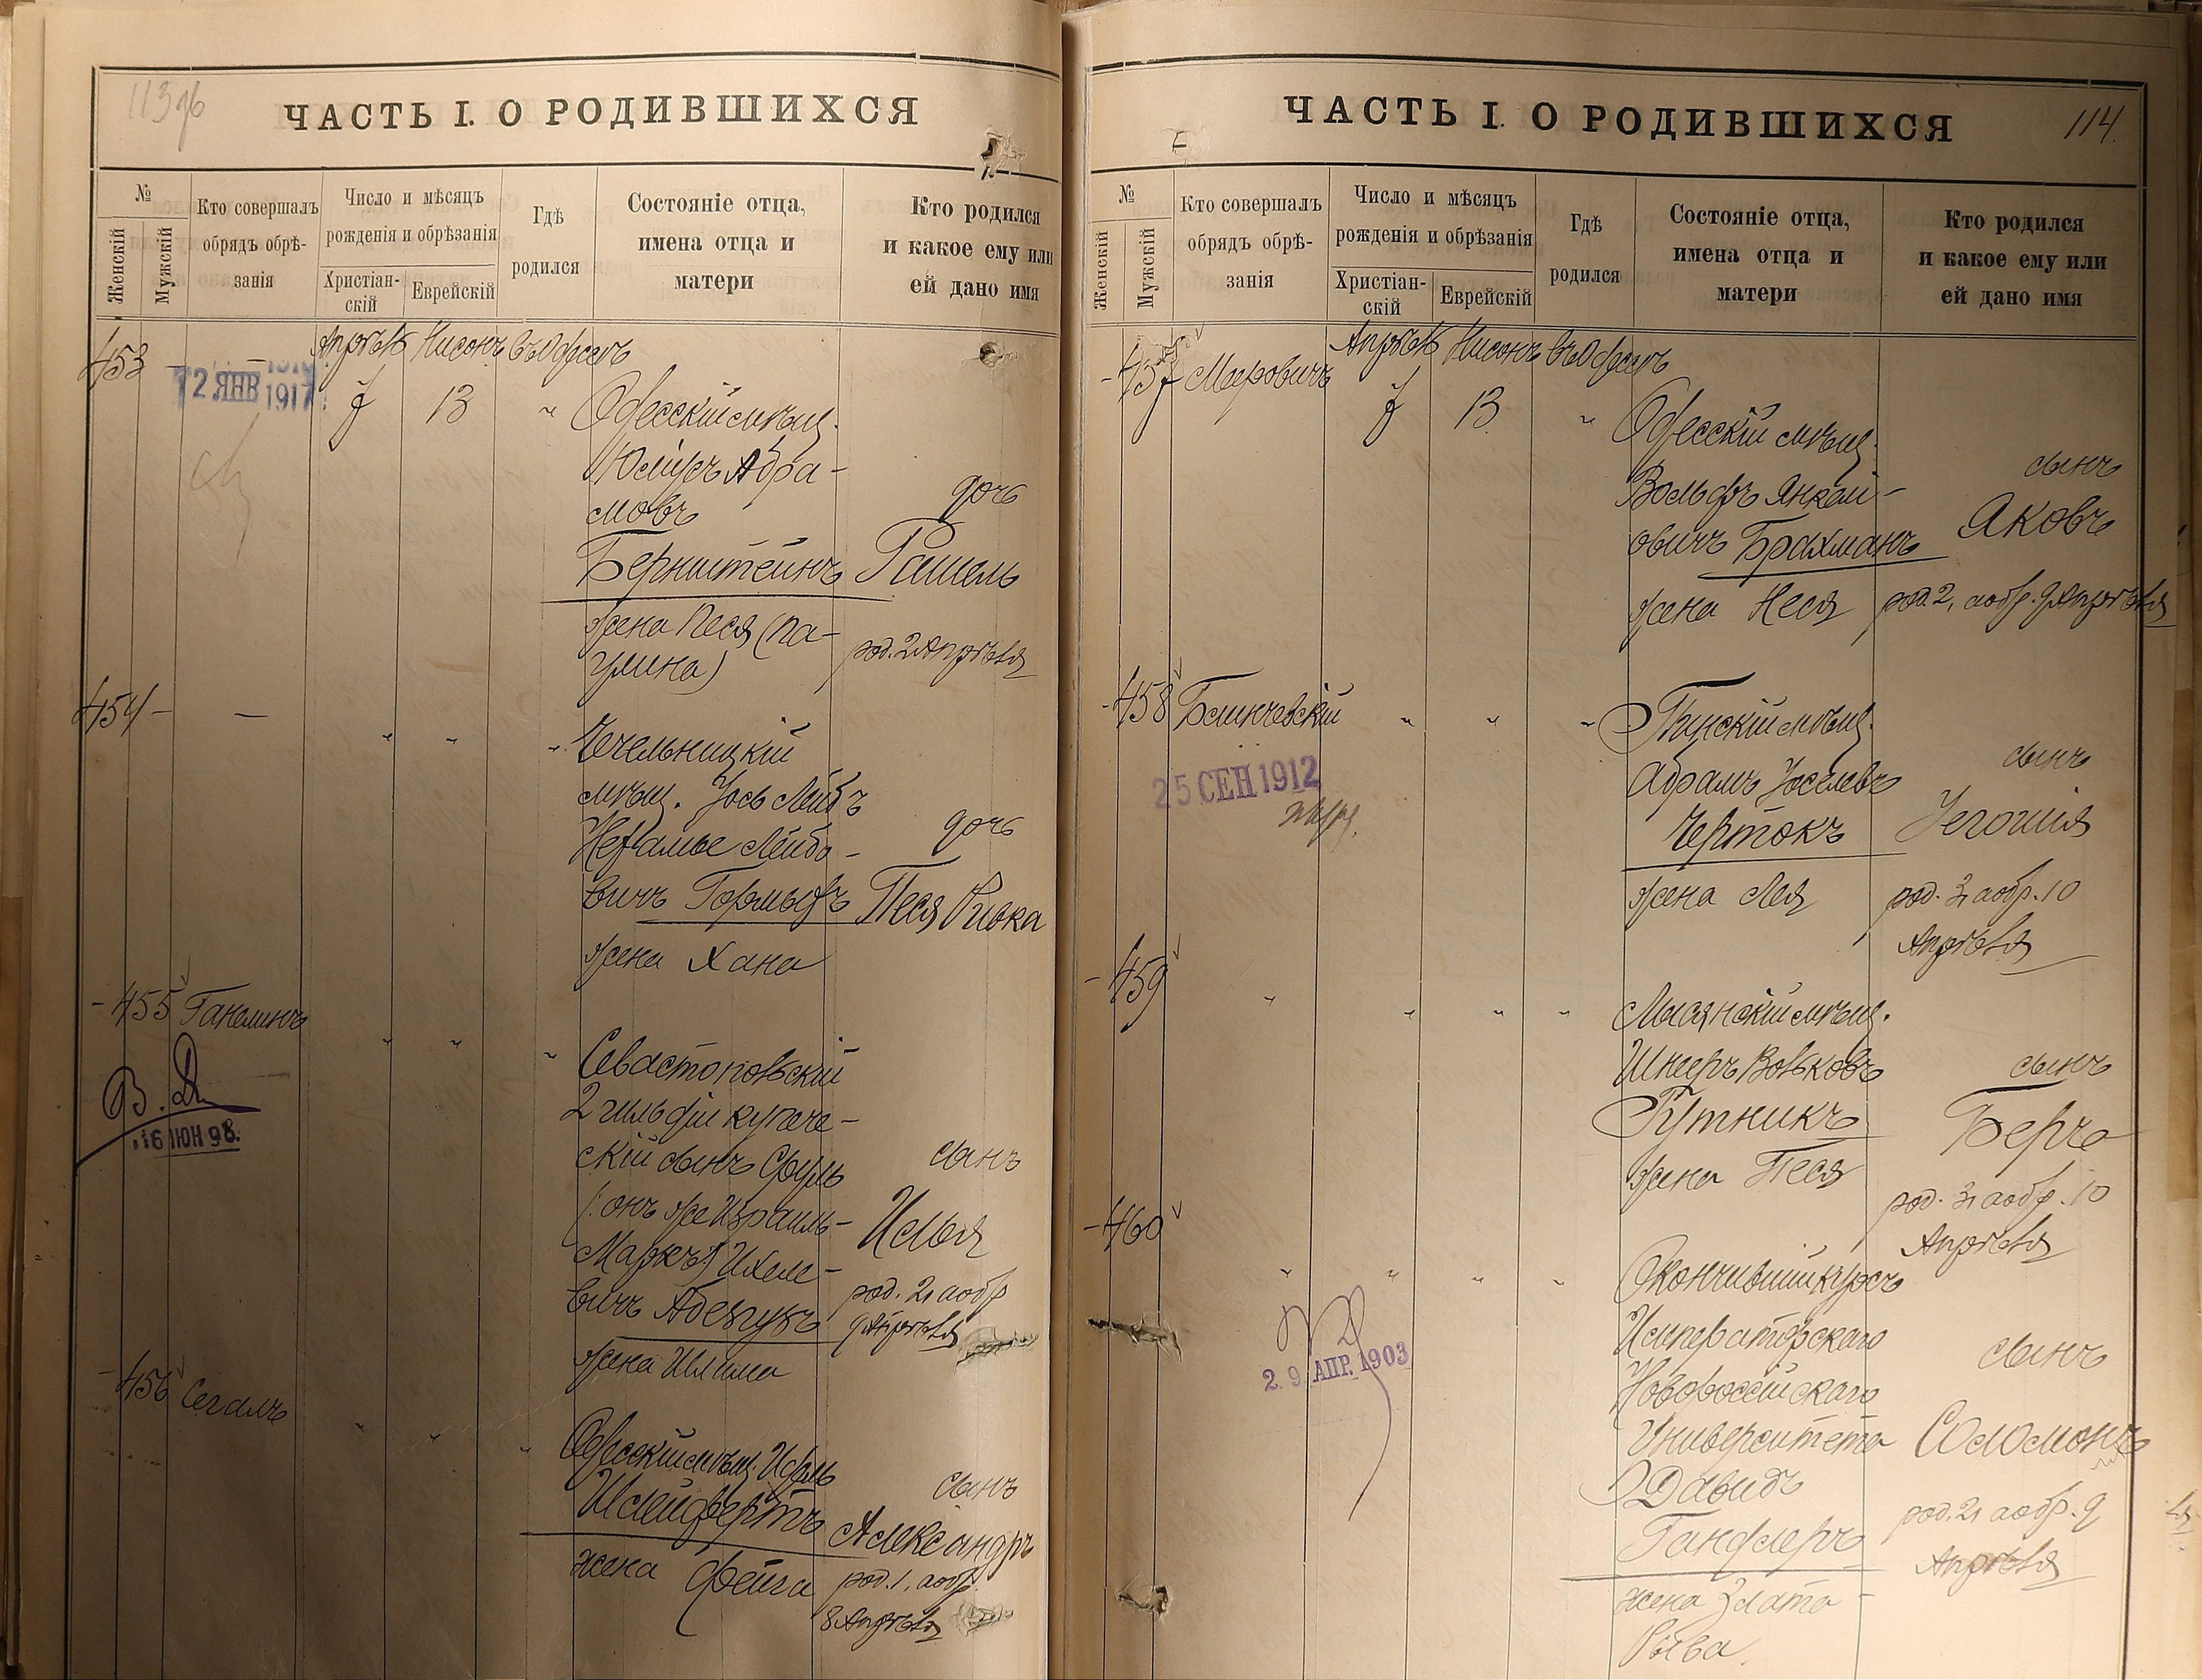 113об
ЧАСТЬ I. О РОДИВШИХСЯ
№
Женскій
Мужскій
Кто совершалъ
обрядъ обрѣ-
занія
Число и мѣсяцъ
рожденія и обрѣзанія
Христіан-
скій
Еврейскій
Гдѣ
родился
Состояніе отца,
имена отца и
матери
Кто родился
и какое ему или
ей дано имя
453
—
Апрѣль Нисонъ въ Одессѣ
12 ЯНВ 1917
13
Одесскій мѣщ.
Абра-
мовъ
Бернштейнъ
жена Песя (Па-
улина)
дочь
Рашель
род. 2 Апрѣля
454 — —
Чечельницкій
мѣщ. Іось Лейбъ
Лейбо-
вичъ
жена Хана
дочь
Песя Ривка
455
Севастопольскій
2 гильдіи купече-
скій сынъ Сруль
(онъ же Израиль-
Маркъ) Ихеле-
вичъ
жена
сынъ
Илья
род. 2, а обр
9 Апрѣля
В. Д.
16 ИЮН 98.
456 Сегалъ
Одесскій мѣщ.
жена Фейга
сынъ
Александръ
род. 1, а обр.
8 Апрѣля
114.
ЧАСТЬ I. О РОДИВШИХСЯ
№
Женскій
Мужскій
Кто совершалъ
обрядъ обрѣ-
занія
Число и мѣсяцъ
рожденія и обрѣзанія
Христіан-
скій
Еврейскій
Гдѣ
родился
Состояніе отца,
имена отца и
матери
Кто родился
и какое ему или
ей дано имя
457 Мееровичъ
Апрѣль Нисонъ въ Одессѣ
13
Одесскій мѣщ.
Вольфъ Янкел-
овичъ Брахманъ
жена Неся
сынъ
Яковъ
род. 2, а обр. 9 Апрѣля
458
Пинскій мѣщ.
Абрамъ Іоселевъ
Чертокъ
жена Лея
сынъ
Іегошія
род. 3, а обр. 10
Апрѣля
25 СЕН 1912
459
мѣщ.
Шнееръ Вольковъ
Путникъ
жена Песя
сынъ
Беръ
род. 3, а обр. 10
Апрѣля
460
Окончившій курсъ
Императорскаго
Новороссійскаго
Университета
Давидъ
жена Злата
сынъ
Соломонъ
род. 2, а обр. 9
Апрѣля
29 АПР. 1903